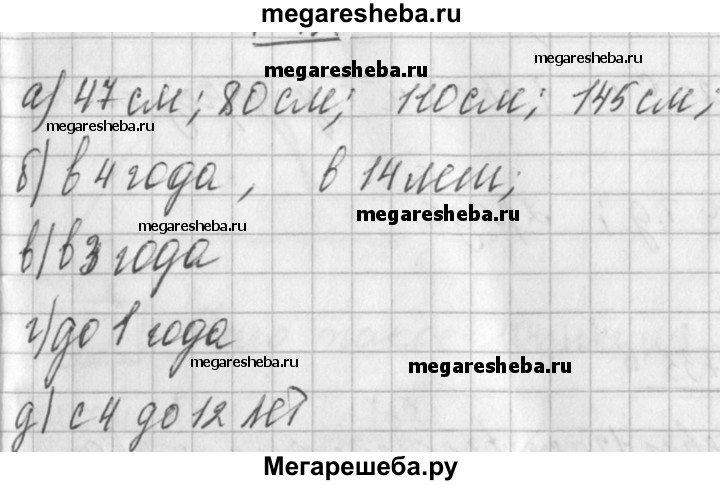 megaresheba.ru
megaresheba.ru
megaresheba.ru
а) 47 см; 80 см; 110 см; 145 см;
megaresheba.ru
б) в 4 года, в 14 лет;
megaresheba.ru
megaresheba.ru
в) в 3 года
г) до 1 года
megaresheba.ru
megaresheba.ru
д) с 4 до 12 лет
Мегарешеба.ру